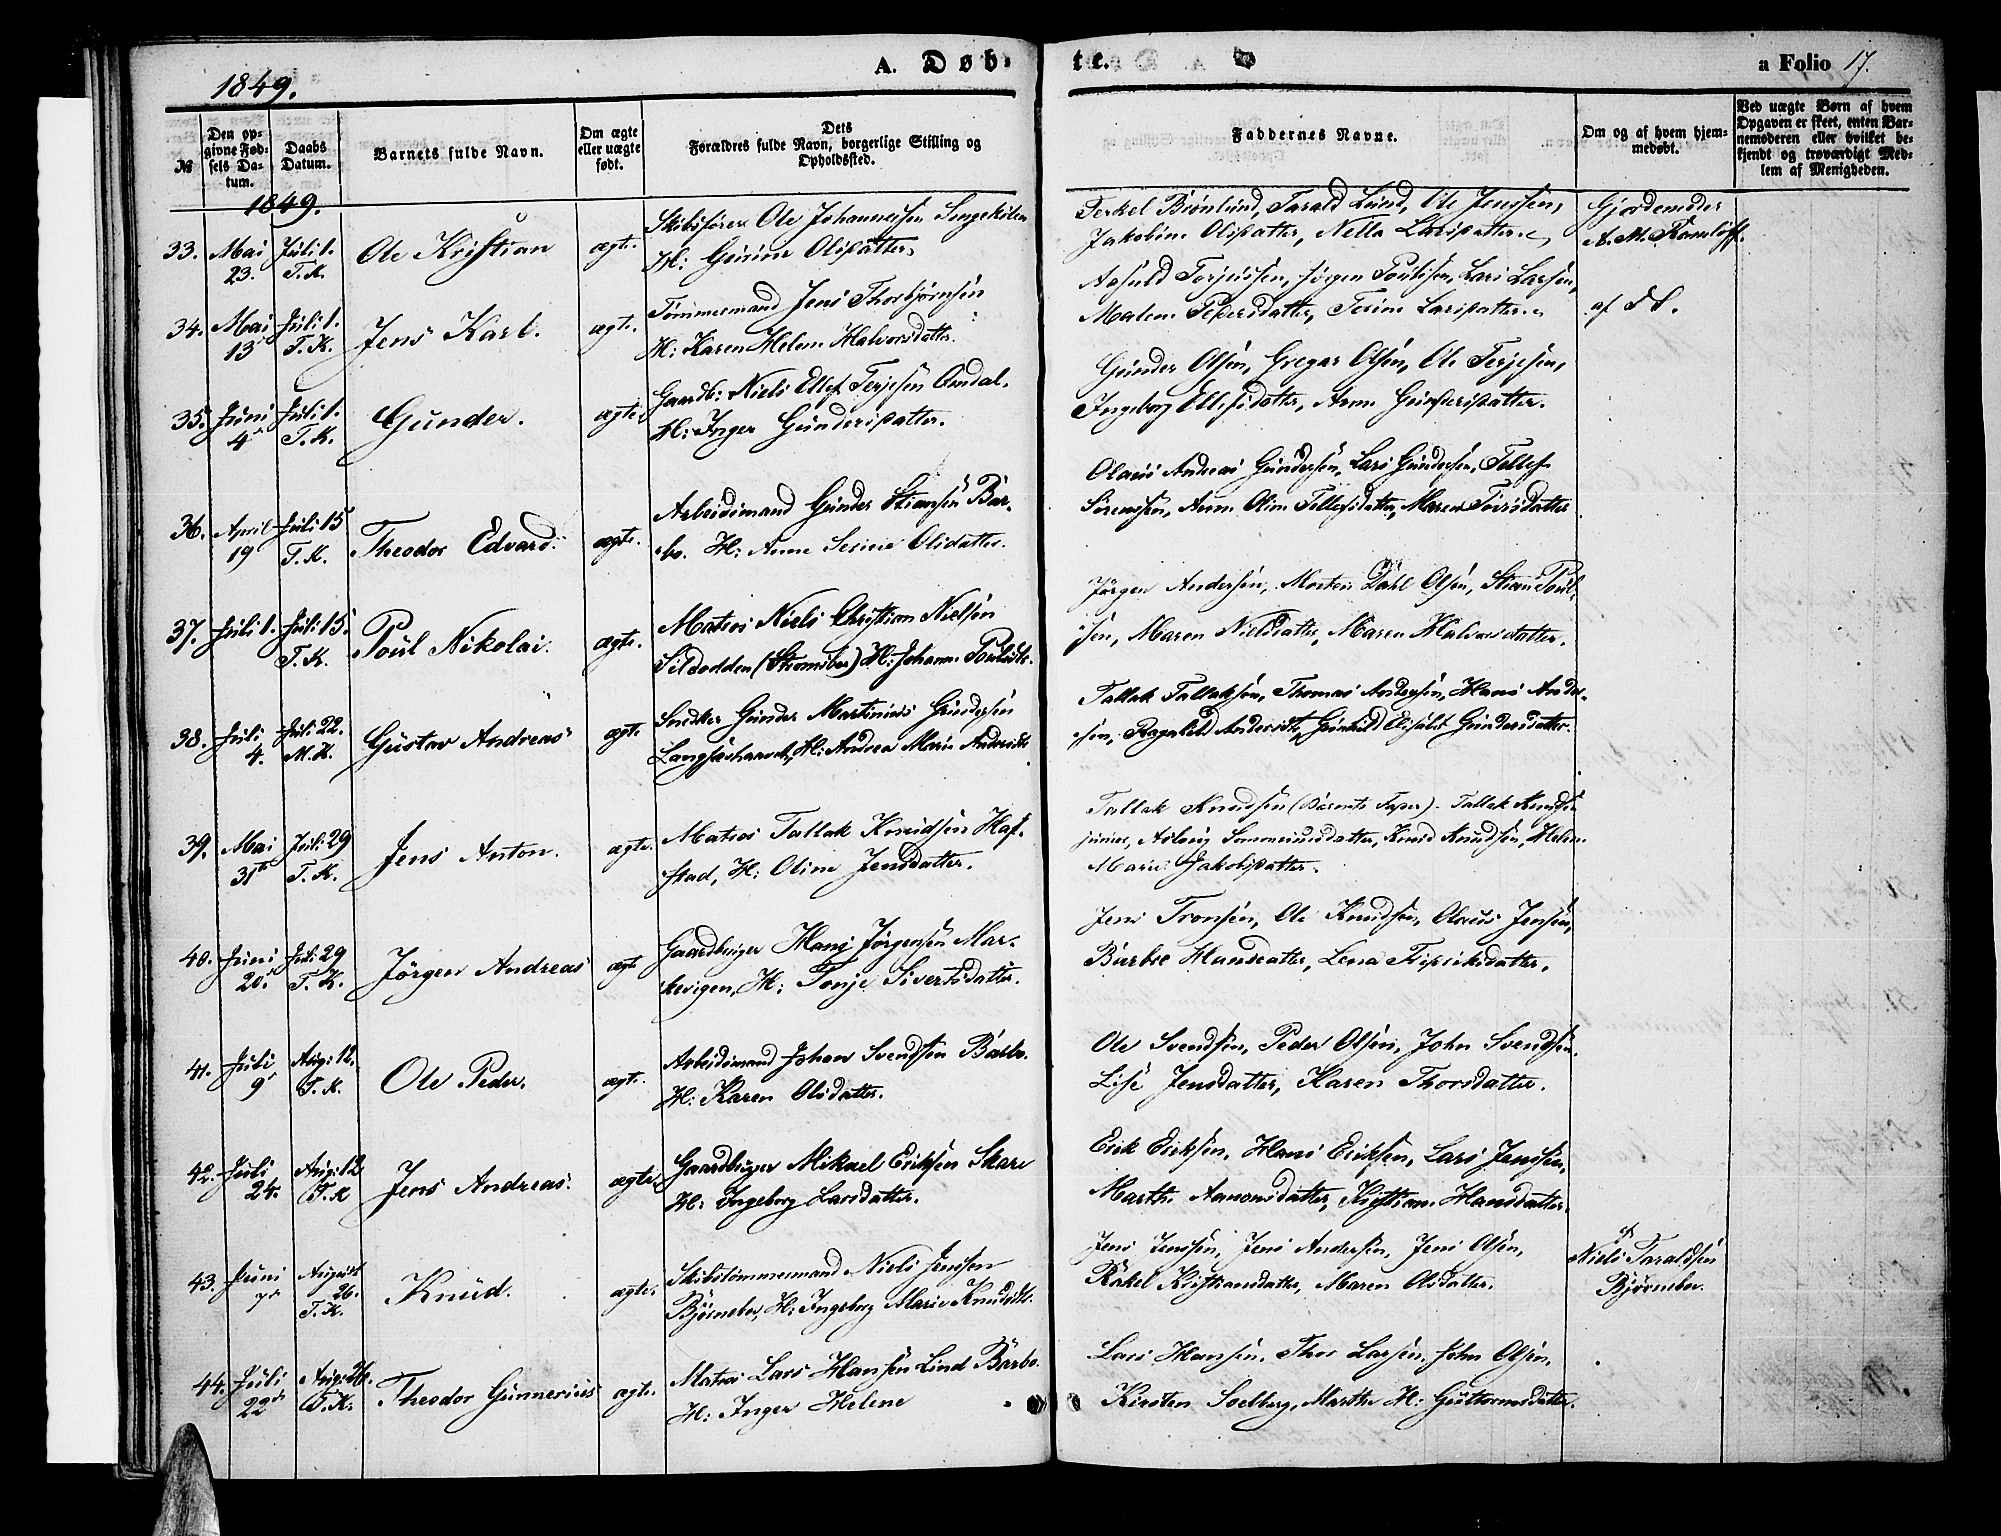 1849.
A. Døb-
te.
a Folio 17.
№
Den op-
givne Fød-
sels Da-
tum.
Daabs
Datum.
Barnets fulde Navn.
Om ægte
eller uægte
født.
Dets
Forældres fulde Navn, borgerlige Stilling og
Opholdssted.
Faddernes Navne.
Om og af hvem hjem-
medøbt.
Ved uægte Børn af hvem
Opgaven er skeet, enten Bar-
nemoderen eller hvilket be-
kjendt og troværdigt Med-
lem af Menigheden.
1849.
33. Mai Juli 1. Ole Kristian ægte. Skibsfører Ole Johannessen
23. T.K. H: Olsdatter.
Terkel Brønlund, Tarald Lund, Ole Jenssen,
Jakobine Olsdatter, Nella Larsdatter.
Gjordemoder
A. M.
34. Mai Juli 1. Jens Karl. ægte. Tømmermand Jens Thorbjørnsen
13 T.K. H: Karen Helene Halvorsdatter.
Aasuld Torjussen, Jørgen Poulssen, Lars Larsen,
Malene Pedersdatter, Terine Larsdatter.
af
35. Juni Juli 1. Gunder. ægte. Gaardb: Niels Ellef Terjesen Omdal.
4 T.K. H: Inger Gundersdatter.
Gunder Olsen, Gregar Olsen, Ole Terjesen,
Ingeborg Ellefsdatter, Anne Gundersdatter.
36. April Juli 15 Theodor Edvard. ægte. Arbeidsmand Gunder Stiansen Bar-
19 T.K. bo. H: Anne Serine Olsdatter.
Olaus Andreas Gundersen, Lars Gundersen, Tellef
Sørenssen, Anne Oline Tellefsdatter, Maren
37. Juli 1. Juli 15. Poul Nikolai. ægte. Matros Niels Christian Nielsen
T.K. Sildodden (Stromsboe) H: Johanne Poulsdtr.
Jørgen Andersen, Morten Dahl Olsen, Stian Poul-
sen, Maren Nielsdatter, Maren Halvorsdatter.
38. Juli Juli 22. Gustav Andreas ægte Snedker Gunder Martinius Gundersen
4. M.K. H: Andrea Marie Andersdtr
Tallak Tallaksen, Thomas Andersen, Hans Ander-
sen, Ragnhild Andersdtr, Gunhild Elisabet Gundersdatter.
39. Mai Juli 29 Jens Anton. ægte. Matros Tallak Knudsen Haf-
31te T.K. stad, H: Oline Jensdatter.
Tallak Knudsen (Barnets Fader). Tallak Knudsen
junior, Aslaug Knud Knudsen, Helene
Marie Jakobsdatter.
40. Juni Juli 29 Jörgen Andreas ægte Gaardbruger Hans Jørgensen Mar-
20. T.K. kevigen, H: Tonje Sivertsdatter.
Jens Tronsen, Ole Knudsen, Olaus Jensen,
Barbre Hansdatter, Lena
41. Juli Aug: 12. Ole Peder. ægte. Arbeidsmand Johan Svendsen Barbo.
9 T.K. H: Karen Olsdatter.
Ole Svendsen, Peder Olsen, John Svendsen.
Lise Jensdatter, Karen Thorsdatter.
42. Juli Aug: 12 Jens Andreas. ægte. Gaardbruger Mikael Eriksen Skare
24. T.K H: Ingeborg Larsdatter.
Erik Eriksen, Hans Eriksen, Lars Jenssen,
Marthe Aanonsdatter, Kristiane Hansdatter.
43. Juni August Knud. ægte. Skibstømmermand Niels Jenssen
7 26. T.K. Bjørneboe, H: Ingeborg Marie Knudsdtr.
Jens Jenssen, Jens Andersen, Jens Olsen,
Rakel Kristiansdatter, Maren Olsdatter.
af
Niels Taraldsen
Bjørneboe.
44. Juli Aug: 26. Theodor Gunnerius ægte. Matros Lars Hansen Lind Barbo.
22 T.K. H: Inger Helene
Lars Hansen, Thor Larsen, John Olsen,
Kirsten Soelberg, Marthe H: Guttormsdatter.